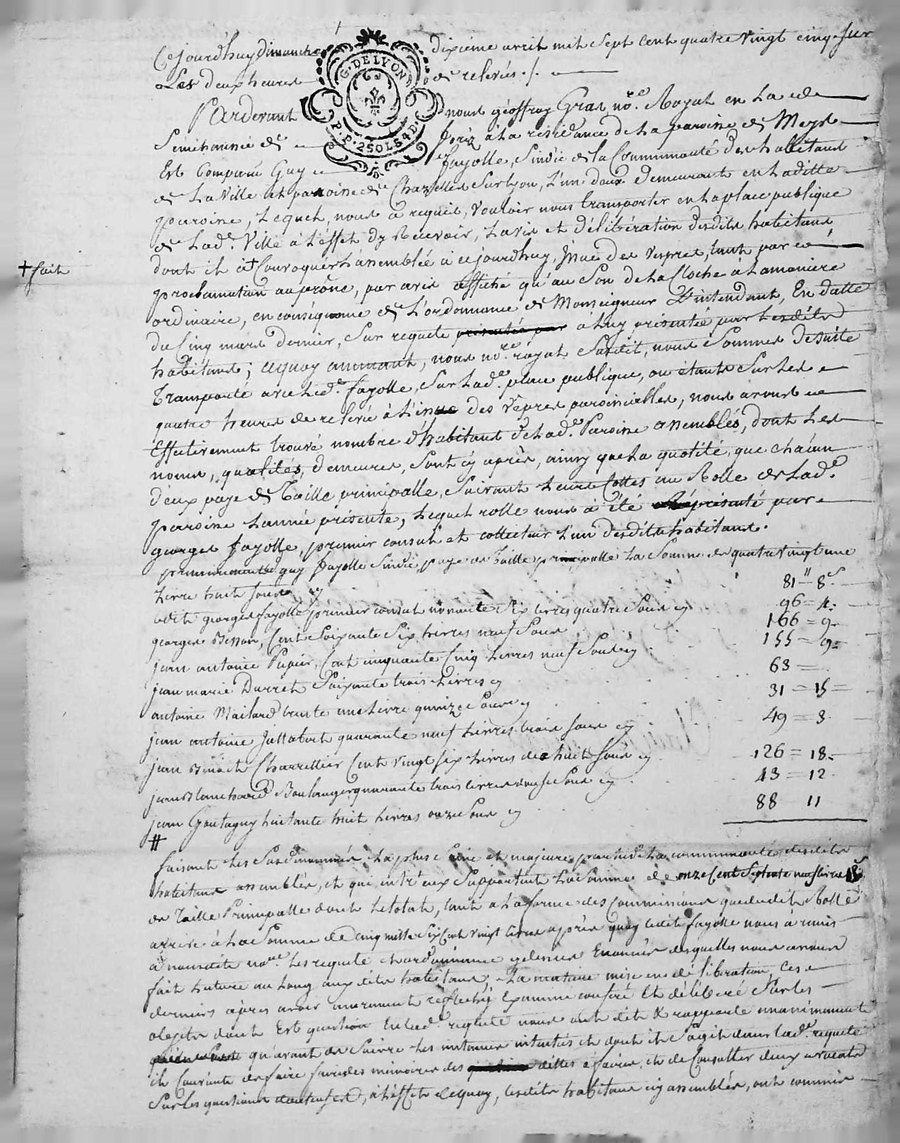 Cejourdhuy dimanche dixième avril mil Sept Cent quatre vingt cinq Sur
Les deux heures de relevés ./.
G. DE LYON
P. P. 250L54D.
Pardevant nous géoffroy Gras no.re Royal en la
Sénéchaussée de à la résidence de la paroisse de Meys
Est Comparu Guy fayolle, Sindic de la Communauté des habitans
de La Ville et paroisse de Chazelles Sur lyon, L'un deux demeurant en Ladite
paroisse, Lequel nous à requis, vouloir nous transporter en la place publique
de Lad.e Ville à L'effet dy Recevoir, L'avis et délibération desdits habitans
dont il a † Convoquer L'assemblée à cejourdhuy, issue des vepres, tant par
† fait
proclamation au prône, par avis affiché qu'au Son de La Cloche a La maniere
ordinaire, en conséquence de L'ordonnance de Monseigneur L'intendant, En datte
du Cinq mars dernier, Sur requete à Luy présentée par Lesdits
habitans; aquoy adhérant, nous no.re royal Susdit, nous Sommes de Suite
Transporté avec Led. fayolle, Sur Lad.e place publique, ou étant Sur Les
quatre heures de relevée à L'issue des vêpres paroissialles, nous avons
Effectivement trouvé nombre d'habitans de Lad.e Paroisse assemblés, dont Les
noms, qualités, demeures, Sont cy après, ainsy que La quotité, que chacun
deux paye de Taille principalle, Suivant Leurs Cottes au Rolle de Lad.e
paroisse L'année présente, Lequel rolle nous à été représenté par
georges fayolle, premier consul et collecteur L'un desdits habitans.
premierement guy fayolle Sindic, paye de taille principalle La Somme de quatre vingt une
Livre huit Sous cy 81 " 8 s
Ledit georges fayolle premier consul nonante Six livres quatre Sous cy 96 = 4
georges Besson, Cent Soixante Six Livres neuf Sous 166 = 9
jean antoine Papier, Cent cinquante Cinq Livres neuf Sous cy 155 = 9
jean marie Durret Soixante trois Livres cy 63 =
antoine Mailard trente une Livre quinze Sous cy 31 = 15
jean antoine quarante neuf Livres trois Sous cy 49 = 3
jean Benoît Charrellier Cent vingt Six Livres dix huit Sous cy 126 = 18
jean Blanchard Boulanger quarante trois Livres douze Sous cy 43 = 12
jean Goutagny huitante huit Livres onze Sous cy 88 11
#
faisant Les Susdénommés La plus Saine et majeure partie de La communauté desdits
habitans assemblés, et qui entre eux Supportent La Somme de onze Cent Septante neuf Livres 18 s
de Taille Principalle dont Le total, tant à La forme des Commissions que dudit Rolle
arrivé à La Somme de Cinq mille Six Cent vingt Livres après quoy Ledit fayolle nous à remis
à nousdits no.re Les requete et ordonnance Emanées desquelles nous avons
fait Lecture au Long auxdits habitans, La matiere mise en délibération, Ces
derniers après avoir murement reflechy Examiné conféré Et délibéré Sur Les
objets dont Est question En Lad.e requete nous ont dit & rapporté unanimement
qu'avant de Suivre Les instances intentées et dont il S'agit dans Lad.e requete
il Convient de faire faire des mémoires des dittes affaires, et de Consulter deux avocats
Sur Les questions, à L'effet dequoy, Lesdits habitans cy assemblés, ont commis